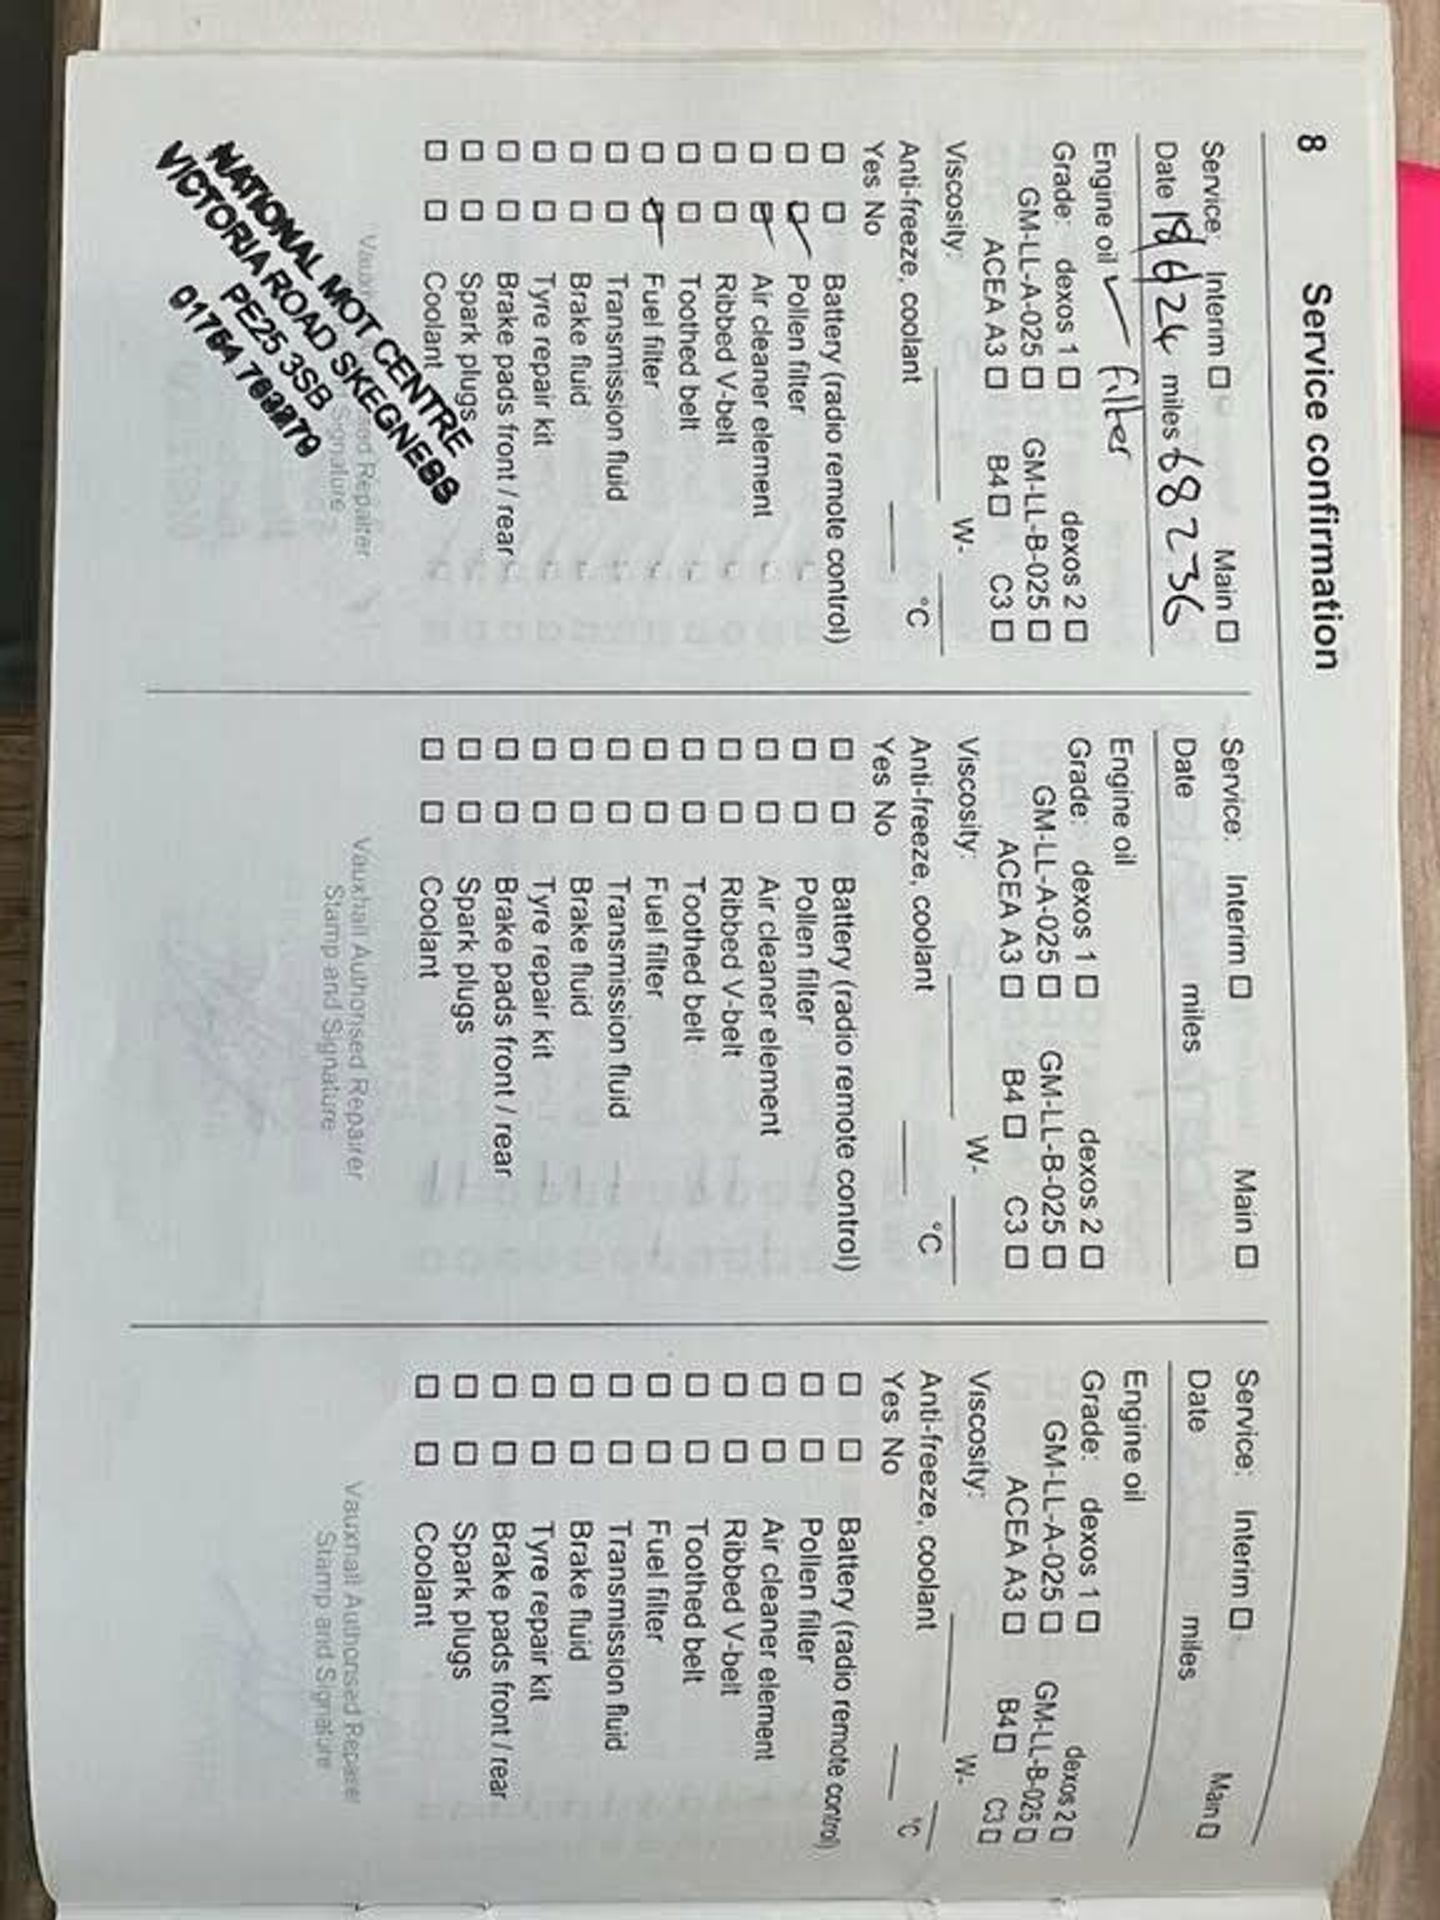 8 Service confirmation
Service: Interim ☐ Main ☐
Date 18/6/24 miles 68236
Engine oil ✓ filter
Grade: dexos 1 ☐ dexos 2 ☐
GM-LL-A-025 ☐ GM-LL-B-025 ☐
ACEA A3 ☐ B4 ☐ C3 ☐
Viscosity: W-
Anti-freeze, coolant °C
Yes No
☐ ☐ Battery (radio remote control)
☐ ☑ Pollen filter
☐ ☑ Air cleaner element
☐ ☐ Ribbed V-belt
☐ ☐ Toothed belt
☐ ☑ Fuel filter
☐ ☐ Transmission fluid
☐ ☐ Brake fluid
☐ ☐ Tyre repair kit
☐ ☐ Brake pads front / rear
☐ ☐ Spark plugs
☐ ☐ Coolant
NATIONAL MOT CENTRE
VICTORIA ROAD SKEGNESS
PE25 3SB
Service: Interim ☐ Main ☐
Date miles
Engine oil
Grade: dexos 1 ☐ dexos 2 ☐
GM-LL-A-025 ☐ GM-LL-B-025 ☐
ACEA A3 ☐ B4 ☐ C3 ☐
Viscosity: W-
Anti-freeze, coolant °C
Yes No
☐ ☐ Battery (radio remote control)
☐ ☐ Pollen filter
☐ ☐ Air cleaner element
☐ ☐ Ribbed V-belt
☐ ☐ Toothed belt
☐ ☐ Fuel filter
☐ ☐ Transmission fluid
☐ ☐ Brake fluid
☐ ☐ Tyre repair kit
☐ ☐ Brake pads front / rear
☐ ☐ Spark plugs
☐ ☐ Coolant
Vauxhall Authorised Repairer
Stamp and Signature
Service: Interim ☐ Main ☐
Date miles
Engine oil
Grade: dexos 1 ☐ dexos 2 ☐
GM-LL-A-025 ☐ GM-LL-B-025 ☐
ACEA A3 ☐ B4 ☐ C3 ☐
Viscosity: W-
Anti-freeze, coolant °C
Yes No
☐ ☐ Battery (radio remote control)
☐ ☐ Pollen filter
☐ ☐ Air cleaner element
☐ ☐ Ribbed V-belt
☐ ☐ Toothed belt
☐ ☐ Fuel filter
☐ ☐ Transmission fluid
☐ ☐ Brake fluid
☐ ☐ Tyre repair kit
☐ ☐ Brake pads front / rear
☐ ☐ Spark plugs
☐ ☐ Coolant
Vauxhall Authorised Repairer
Stamp and Signature